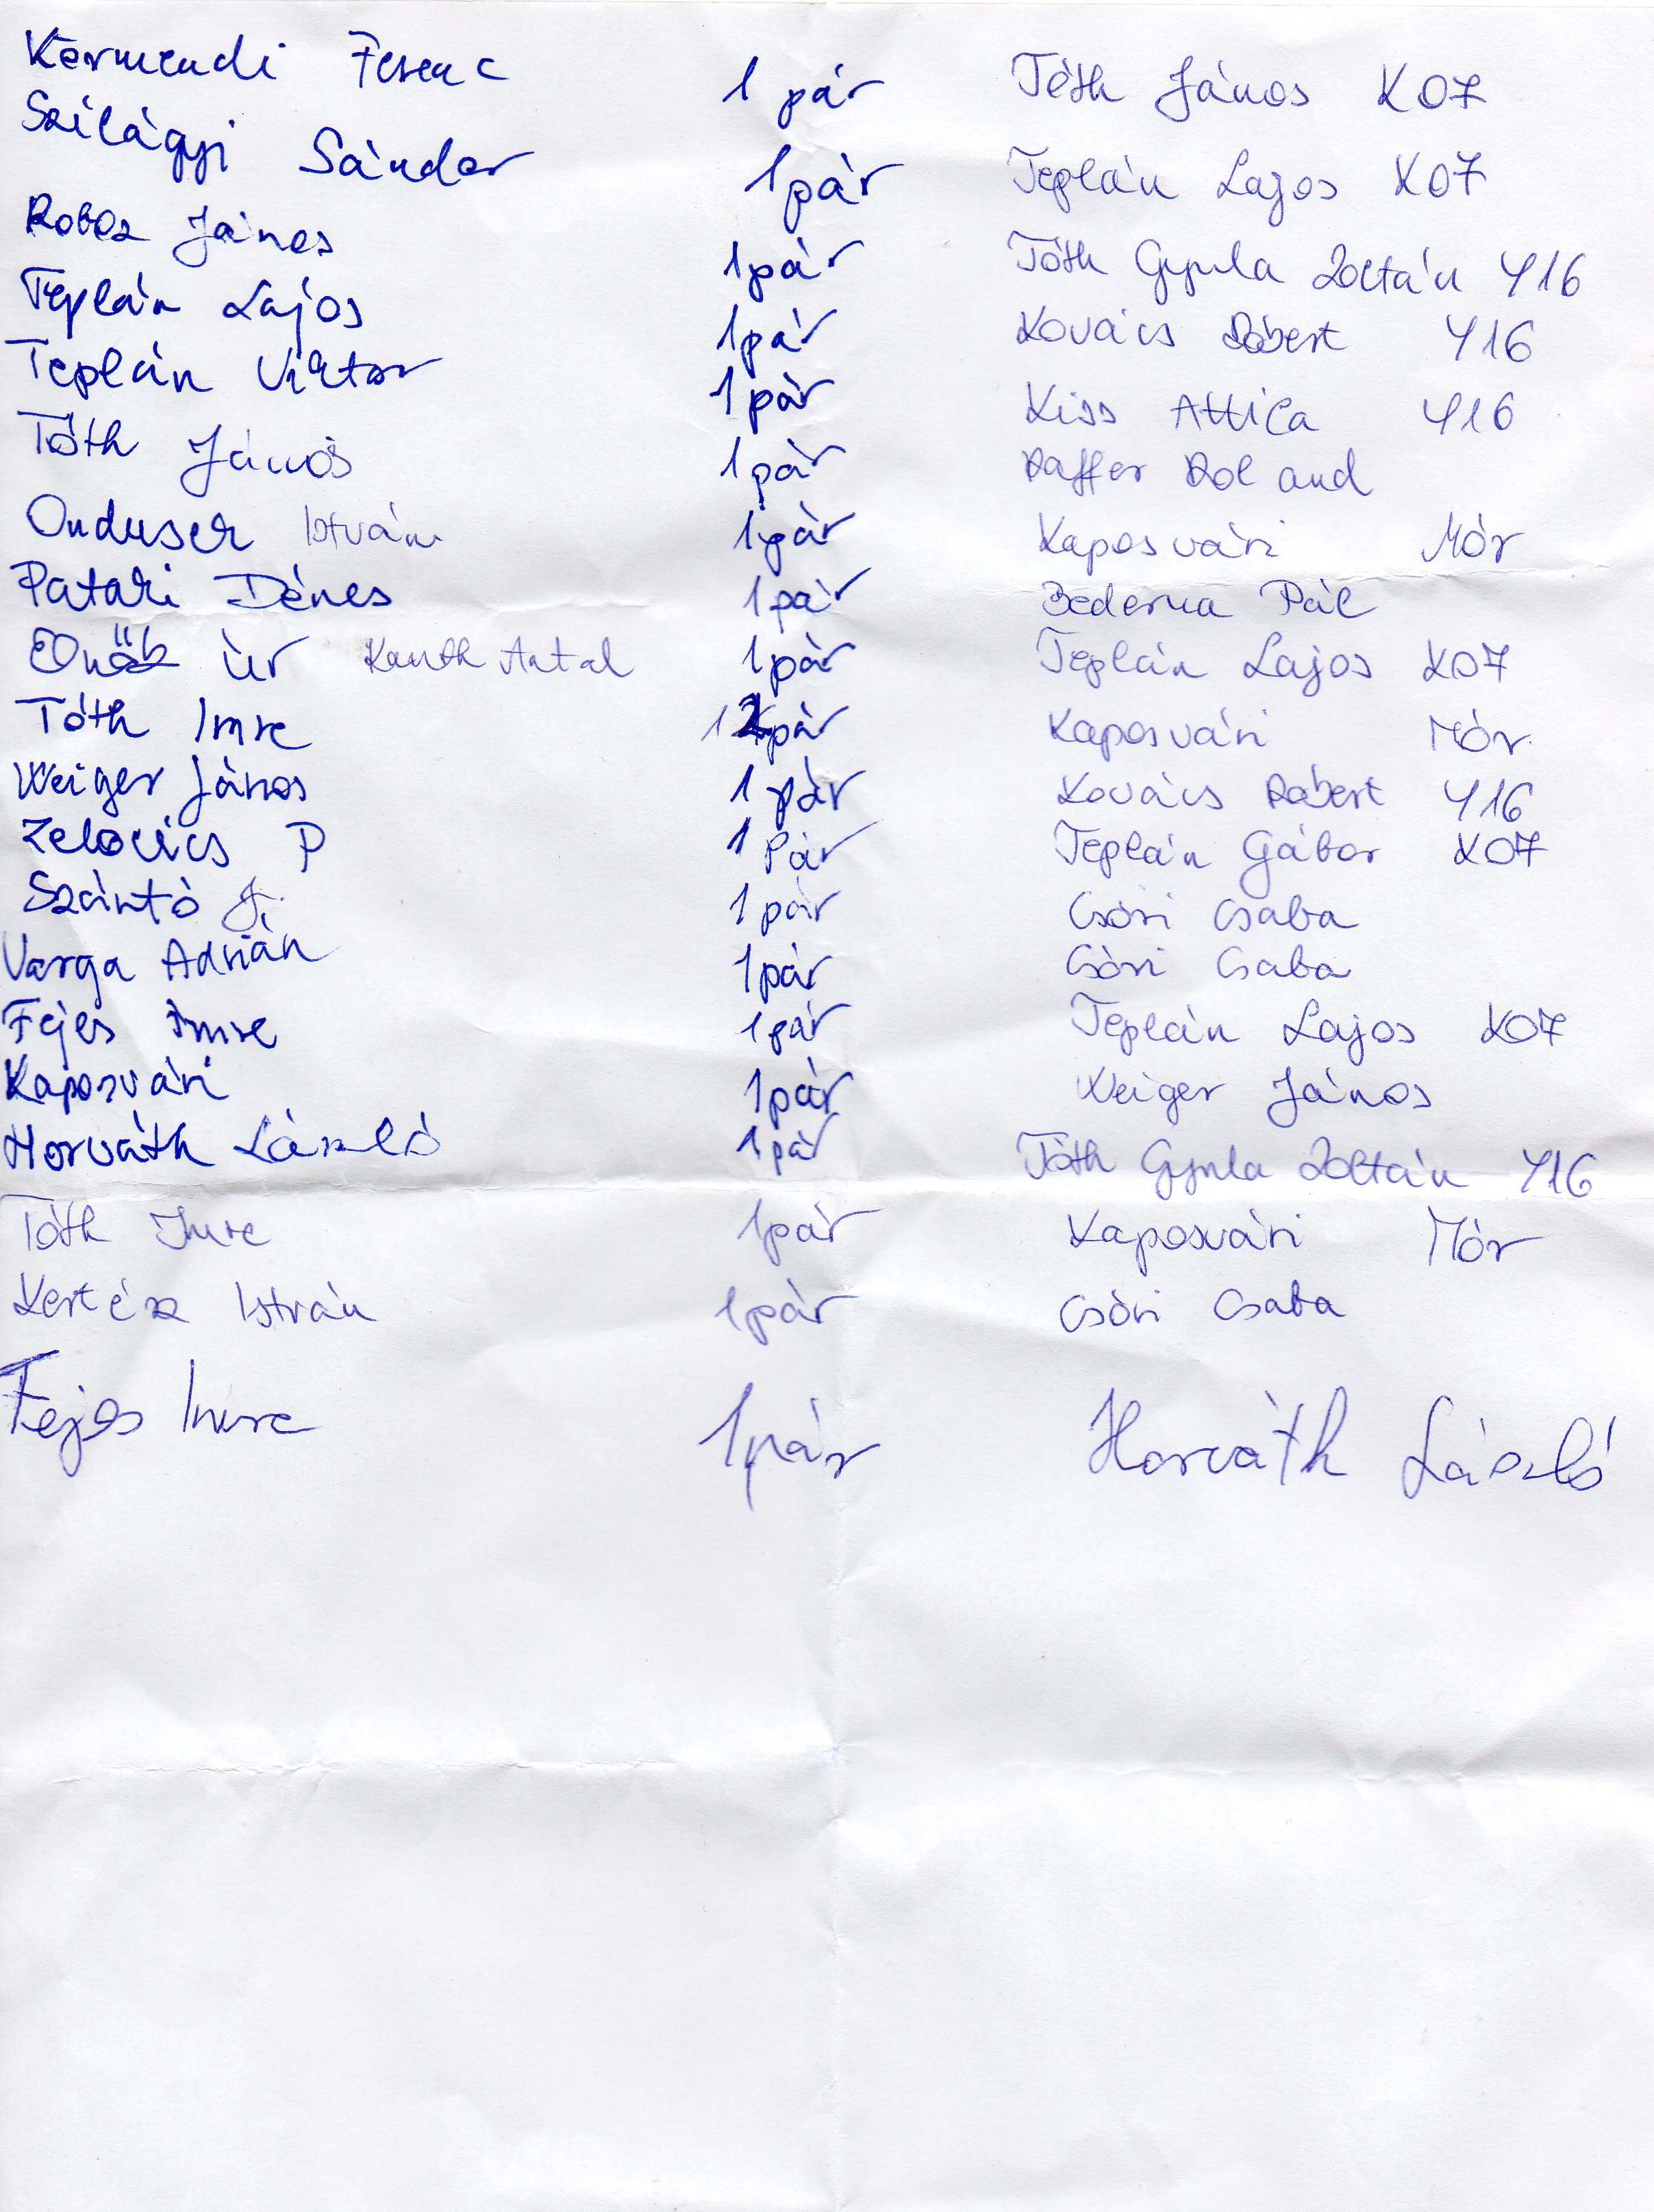 Kermendi Ferenc 1 pár Tóth János K07
Szilágyi Sándor 1 pár Teplán Lajos K07
Roboz János 1 pár Tóth Gyula Zoltán Y16
Teplán Lajos 1 pár Kovács Róbert Y16
Teplán Viktor 1 pár Kiss Attila Y16
Tóth János 1 pár Raffer Roland
Onduser István 1 pár Kaposvári Mór
Pataki Dénes 1 pár Bederna Pál
Úr Kanth Antal 1 pár Teplán Lajos K07
Tóth Imre 1 pár Kaposvári Mór
Weiger János 1 pár Kovács Róbert Y16
Zelovics P 1 Pár Teplán Gábor K07
Szántó J. 1 pár Csóri Csaba
Varga Adrián 1 pár Csóri Csaba
Fejes Imre 1 pár Teplán Lajos K07
Kaposvári 1 pár Weiger János
Horváth László 1 pár Tóth Gyula Zoltán Y16
Tóth Imre 1 pár Kaposvári Mór
Kertész István 1 pár Csóri Csaba
Fejes Imre 1 pár Horváth László